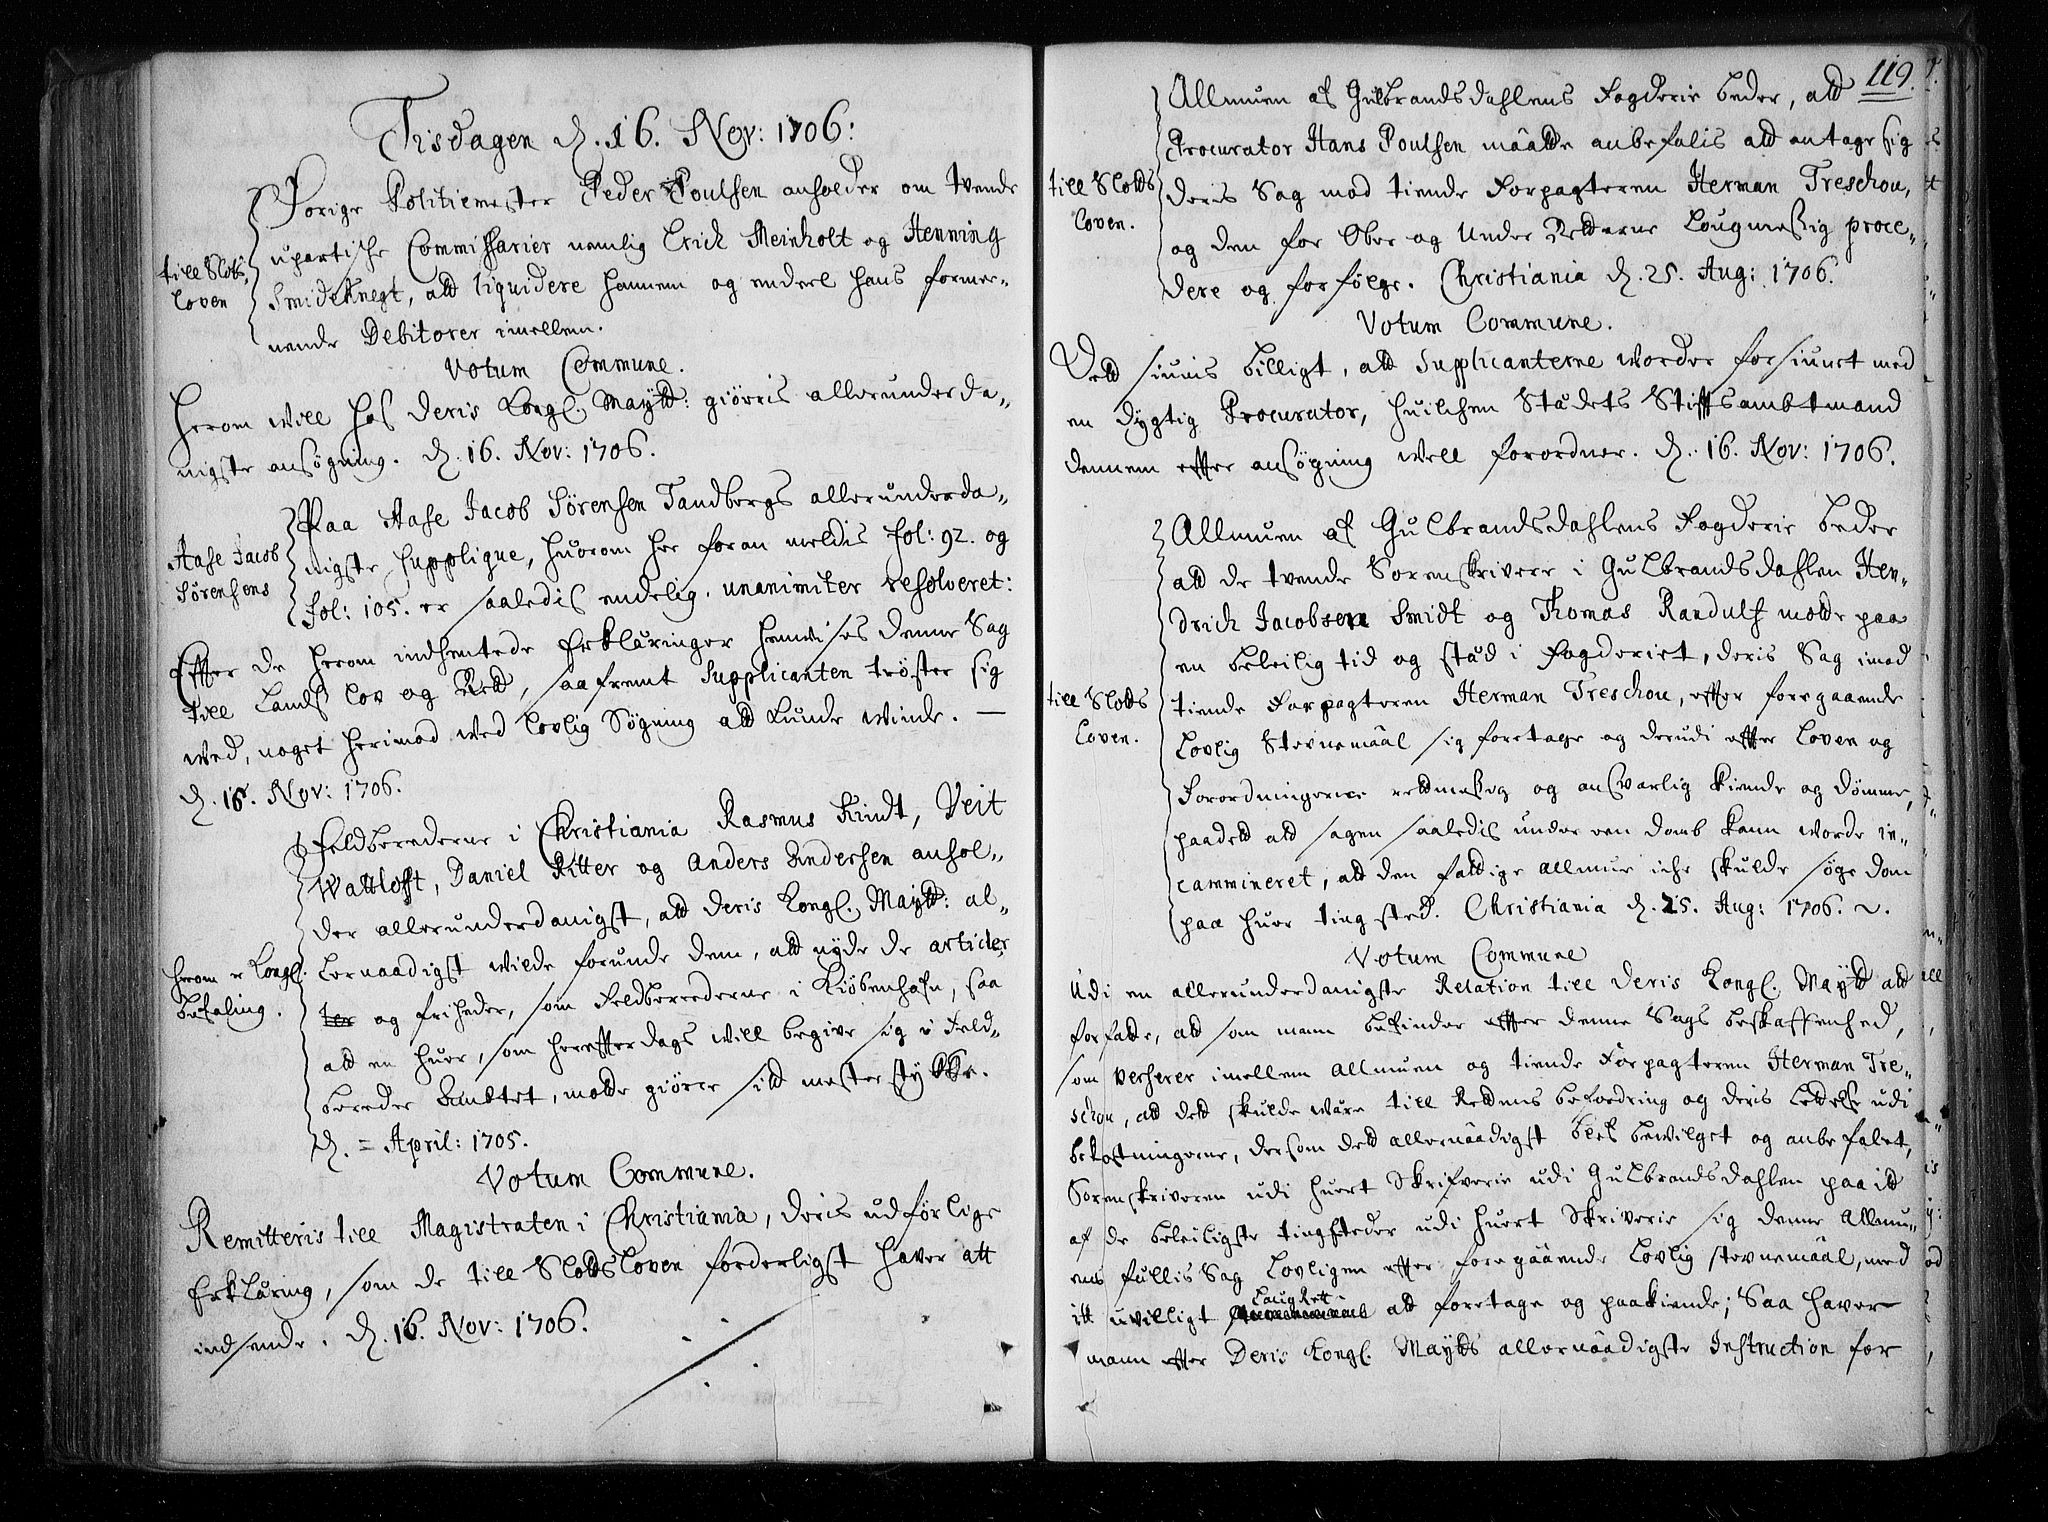 Tisdagen d. 16. Nov: 1706:
Forige Politiemester Peder Poulsen anholder om tvende
upartische Commissarier nemlig Erich Meinholt og Henning
till Slots
loven
Smideknegt, att liquidere hannem og endeel hans formee,,
nende Debitorer imellem.
Votum Commune.
Herom will hos Deris Kongl. Maytt: giørris allerunderda,,
nigste ansøgning. d. 16. Nov: 1706.
Paa Aase Jacob Sørensen Tandbergs allerunderda,,
nigste supplique, huorom her foran meldis fol: 92. og
Aase Jacob
Sørensens
fol: 105. er saaledis endelig unanimiter resolveret:
Effter de herom indhentede Erkläringer henvises denne Sag
till Lands Lov og Rett, saafremt Supplicanten trøster sig
wed, noget herimod wed lovlig Søgning att kunde winde. —
d. 16. Nov: 1706.
Feldberederne i Christiania Rasmus Kindt, Veit
Wattlofft, Daniel Ritter og Anders Andersen anhol,,
der allerunderdanigst, att Deris Kongl. Maytt: al,,
herom er Kongl.
befaling.
lernaadigst wilde forunde dem, att nyde de articler
ter og friheder, som Feldberederne i Kiøbenhafn, saa
att en huer, som hereffterdags will begive sig i Feld,,
bereder Embtet, motte giørre sitt mesterstykke.
d. = April: 1705.
Votum Commune.
Remitteris till Magistraten i Christiania, deris udførlige
Erkläring, som de till Slottsloven forderligst haver att
indsende. d. 16. Nov: 1706.
119.
Allmuen af Gulbrandsdahlens Fogderie beder, att
Procurator Hans Poulsen maatte anbefalis att antage sig
till Slotts
loven.
deris Sag mod tiende Forpagteren Herman Treschou,
og dem for Ober og Under Retterne lougmessig proce,,
dere og forfølge. Christiania d. 25. Aug: 1706.
Votum Commune.
Dett siunis billigt, att Supplicanterne worder forsiunet med
en dygtig Procurator, huilchen Städets Stifftsambtmand
dennem effter ansøgning well forordner. d. 16. Nov: 1706.
Allmuen af Gulbrandsdahlens Fogderie beder
att de tvende Sorenskrivere i Gulbrandsdahlen Hen,,
drich Jacobsen Smidt og Thomas Randulf motte paa
en beleilig tid og städ i Fogderiet, deris Sag imod
till Slotts
loven.
tiende Forpagteren Herman Treschou, effter foregaaende
lovlig Stevnemäal sig foretage og derudi effter Loven og
Forordningerne rettmessig og ansvarlig kiende og dømme,
paadett att sagen saaledis under een domb kann worde in,,
cammineret, att den fattige allmue iche skulde søge dom
paa huer tingsted. Christiania d. 25. Aug: 1706.
Votum Commune
Udi en allerunderdanigste Relation till Deris Kongl. Maytt att
forfatte, att som mann befinder effter denne Sags beskaffenhed,
som verserer imellem Allmuen og tiende Forpagteren Herman Tre,,
schou, att dett skulde wäre till Rettens befordring og deris lettelse udi
bekostningerne, dersom dett allernäadigst blef bewilget og anbefalet,
Sorenskriveren udi huert Skrifverie udi Gulbrandsdahlen paa itt
af de beleiligste tingsteder udi huert Skriverie sig denne Allmu,,
ens fellis Sag lovligen effter foregäaende Lovlig stevnemäal, med
itt uvilligt LaugRett att foretage og paakiende; Saa haver
mann effter Deris Kongl. Maytts allernäadigste Instruction for